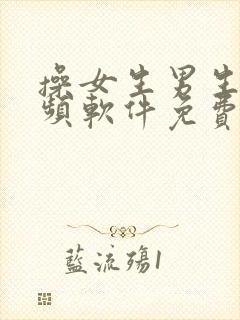 操女生男生
頻軟件免費
藍流殤1